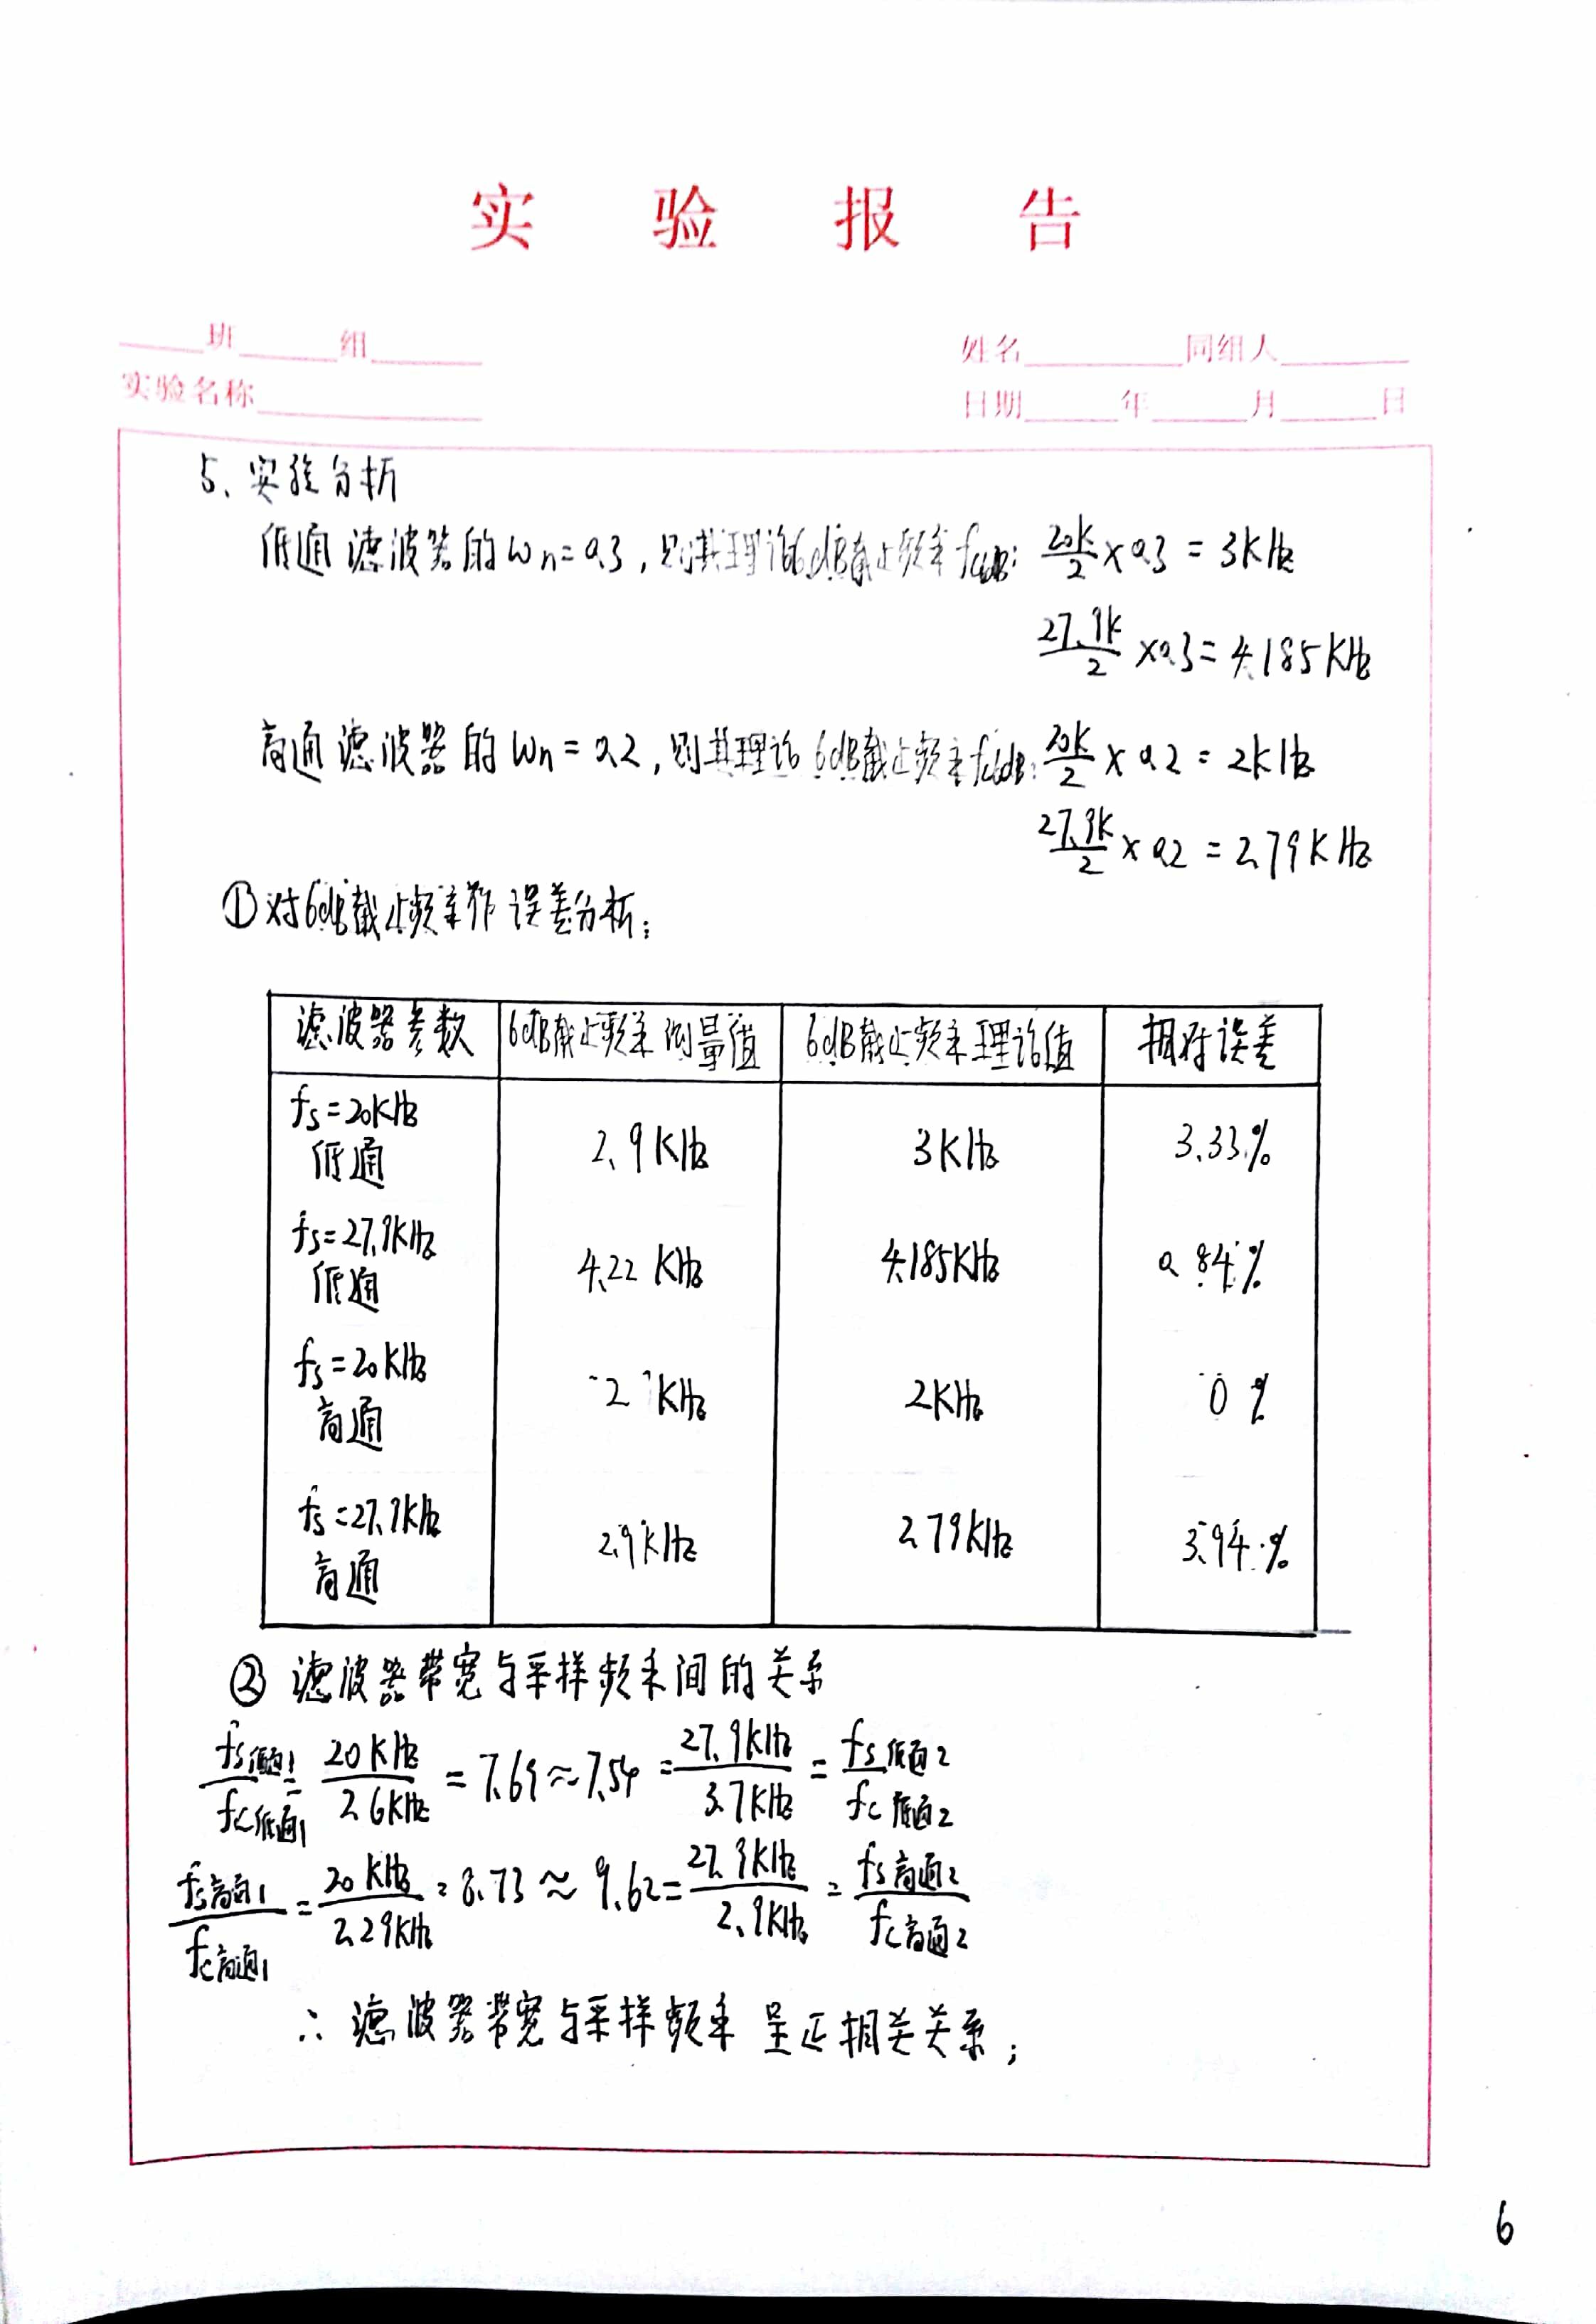 实验报告
班 组 姓名 同组人
实验名称 日期 年 月 日
5、实验分析
低通滤波器的ωn=0.3,则其理论6dB截止频率fc6dB: 20k/2×0.3=3KHz
27.9k/2×0.3=4.185KHz
高通滤波器的ωn=0.2,则其理论6dB截止频率fc6dB: 20k/2×0.2=2KHz
27.9k/2×0.2=2.79KHz
①对6dB截止频率作误差分析:
滤波器参数 6dB截止频率测量值 6dB截止频率理论值 相对误差
fs=20KHz 低通 2.9KHz 3KHz 3.33%
fs=27.9KHz 低通 4.22KHz 4.185KHz 0.84%
fs=20KHz 高通 2KHz 2KHz 0%
fs=27.9KHz 高通 2.9KHz 2.79KHz 3.94%
② 滤波器带宽与采样频率间的关系
fs低通1/fc低通1=20KHz/2.6KHz=7.69≈7.54=27.9KHz/3.7KHz=fs低通2/fc低通2
fs高通1/fc高通1=20KHz/2.29KHz=8.73≈9.62=27.9KHz/2.9KHz=fs高通2/fc高通2
∴滤波器带宽与采样频率呈正相关关系;
6